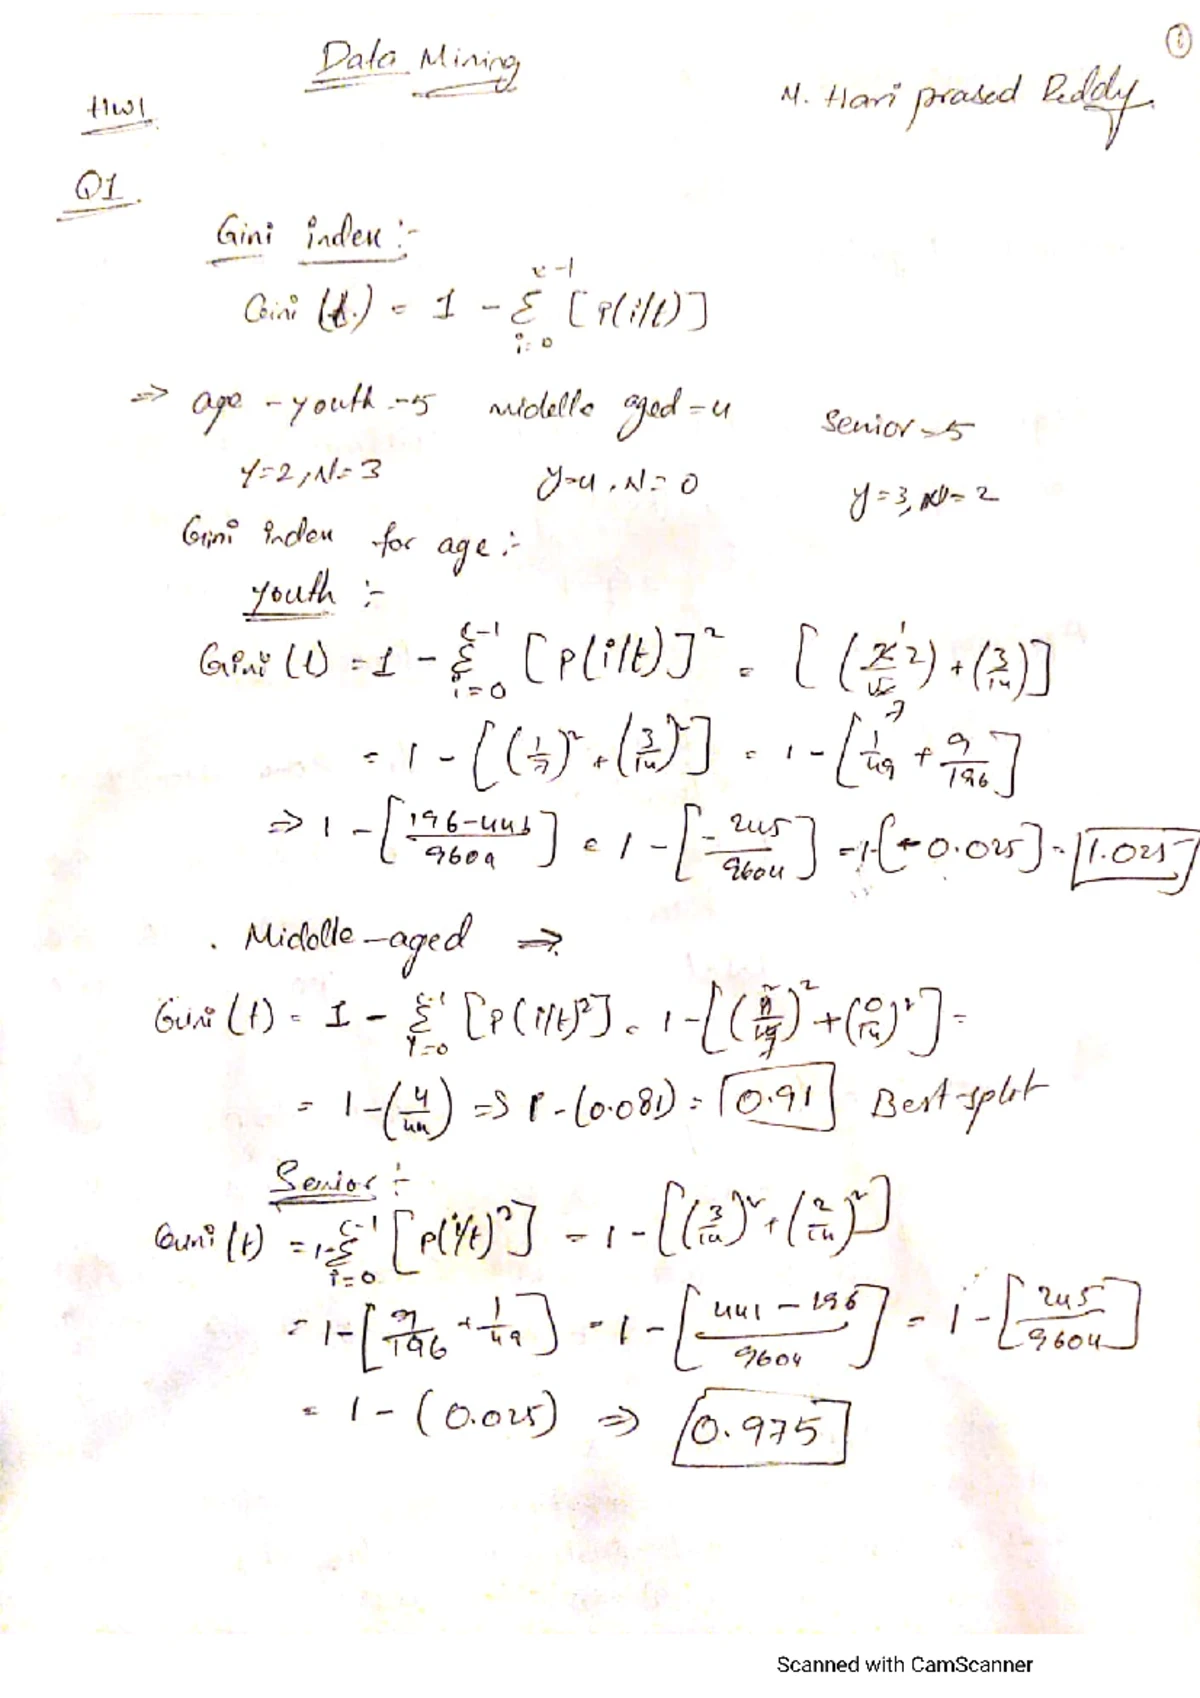 ①
Data Mining
HW1
M. Hari prasad Reddy.
Q1.
Gini index :-
Gini (t.) = 1 - Σ [P(i/t)]
c-1
i=0
=> age - youth - 5 middle aged = 4 Senior = 5
Y=2, N=3 y=4, N=0 y=3, N=2
Gini index for age :-
Youth :-
Gini (t) = 1 - Σ [P(i/t)]² = [(2/14 2) + (3/14)]
c-1
i=0
1
7
= 1 - [(1/7)² + (3/14)²] = 1 - [1/49 + 9/196]
=> 1 - [196-441/9604] = 1 - [-245/9604] = 1-[-0.025] = 1.025
. Middle-aged =>
Gini (t) = 1 - Σ [P(i/t)²] = 1 - [( )² + (0/14)²] =
= 1 - (4/49) => 1 - (0.081) = 0.91 Best-split
Senior :-
Gini (t) = 1-Σ [P(i/t)²] = 1 - [(3/14)² + (2/14)²]
c-1
i=0
= 1-[9/196 + 1/49] = 1 - [441-196/9604] = 1 - [245/9604]
= 1 - (0.025) => 0.975
Scanned with CamScanner